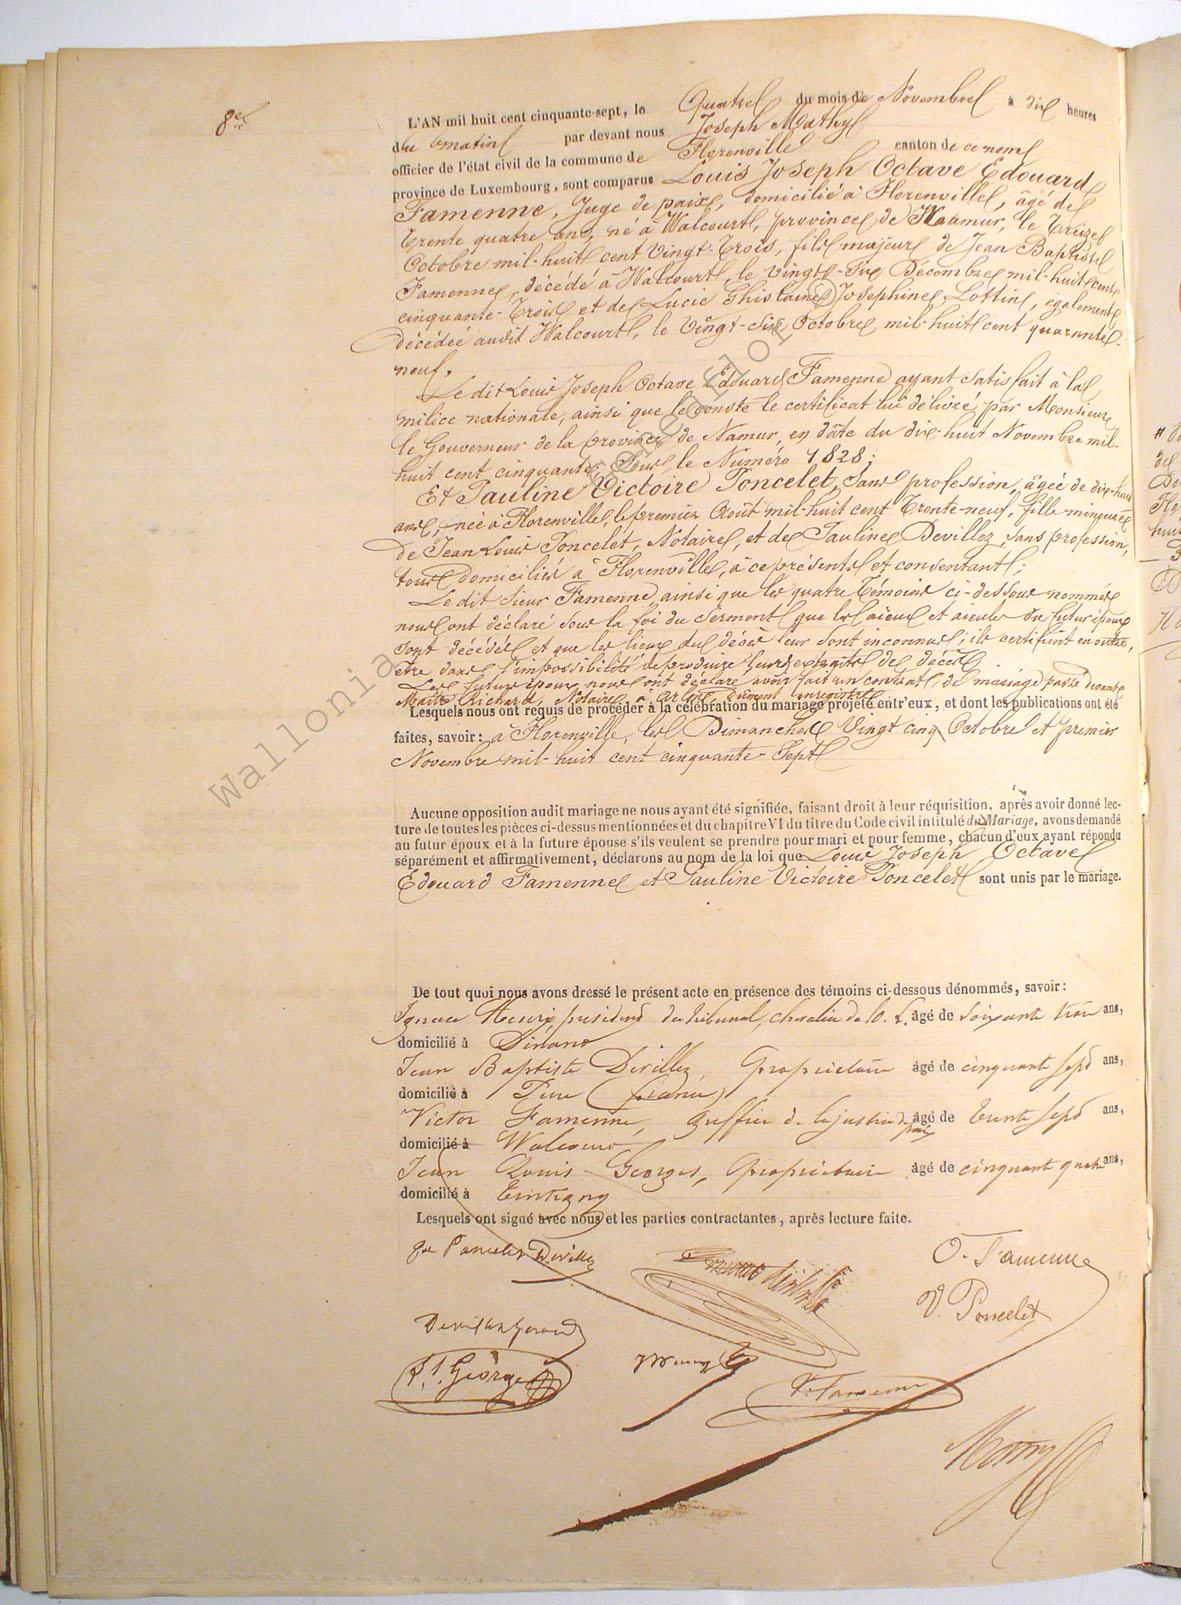 8e
L'AN mil huit cent cinquante-sept, le Quatre du mois de Novembre à dix heures
du matin par devant nous Joseph Mathy
officier de l'état civil de la commune de Florenville canton de ce nom
province de Luxembourg, sont comparus Louis Joseph Octave Edouard
Famenne, Juge de paix, domicilié à Florenville, âgé de
trente quatre ans, né à Walcourt, province de Namur, le treize
Octobre mil-huit cent vingt-trois, fils majeur de Jean Baptiste
Famenne, décédé à Walcourt, le vingt-six Décembre mil-huit cent
cinquante-trois et de Lucie Ghislaine Josephine Lottin, également
décédée audit Walcourt, le vingt-six Octobre mil-huit cent quarante-
neuf.
Le dit Louis Joseph Octave Edouard Famenne ayant satisfait à la
milice nationale, ainsi que le conste le certificat lui délivré par Monsieur
le Gouverneur de la province de Namur, en dâte du dix-huit Novembre mil-
huit cent cinquante sous le Numéro 1828;
Et Pauline Victoire Poncelet, sans profession, âgée de dix-huit
ans, née à Florenville, le premier Août mil-huit cent trente-neuf, fille mineure
de Jean Louis Poncelet, Notaire, et de Pauline Devillez, sans profession,
tous domiciliés à Florenville, à ce présents et consentants;
Le dit Sieur Famenne, ainsi que les quatre témoins ci-dessous nommés
nous ont déclaré sous la foi du serment que les aïeux et aïeules du futur époux
sont décédés et que les lieux des décès leur sont inconnus; ils certifient en outre,
être dans l'impossibilité de produire leurs extraits de décès.
Les futurs époux nous ont déclaré avoir fait un contrat de mariage passé devant
Maitre Richard, Notaire à Arlon, dument enregistré
Lesquels nous ont requis de procéder à la célébration du mariage projeté entr'eux, et dont les publications ont été
faites, savoir: à Florenville, les Dimanches vingt cinq Octobre et premier
Novembre mil-huit cent cinquante-sept
Aucune opposition audit mariage ne nous ayant été signifiée, faisant droit à leur réquisition, après avoir donné lec-
ture de toutes les pièces ci-dessus mentionnées et du chapitre VI du titre du Code civil intitulé du Mariage, avons demandé
au futur époux et à la future épouse s'ils veulent se prendre pour mari et pour femme, chacun d'eux ayant répondu
séparément et affirmativement, déclarons au nom de la loi que Louis Joseph Octave
Edouard Famenne et Pauline Victoire Poncelet sont unis par le mariage.
De tout quoi nous avons dressé le présent acte en présence des témoins ci-dessous dénommés, savoir:
Ignace président du tribunal, âgé de soixante trois ans,
domicilié à Dinant
Jean Baptiste Devillez, Propriétaire âgé de cinquante sept ans,
domicilié à Pure (france)
Victor Famenne, Greffier de la justice de paix âgé de trente sept ans,
domicilié à Walcourt
Jean Louis Georges, Propriétaire âgé de cinquante quatre ans,
domicilié à Tintigny
Lesquels ont signé avec nous et les parties contractantes, après lecture faite.
Poncelet Devillez
O. Famenne
V. Poncelet
J. L. Georges
V. Famenne
Mathy
Wallonia Genealfloor ©